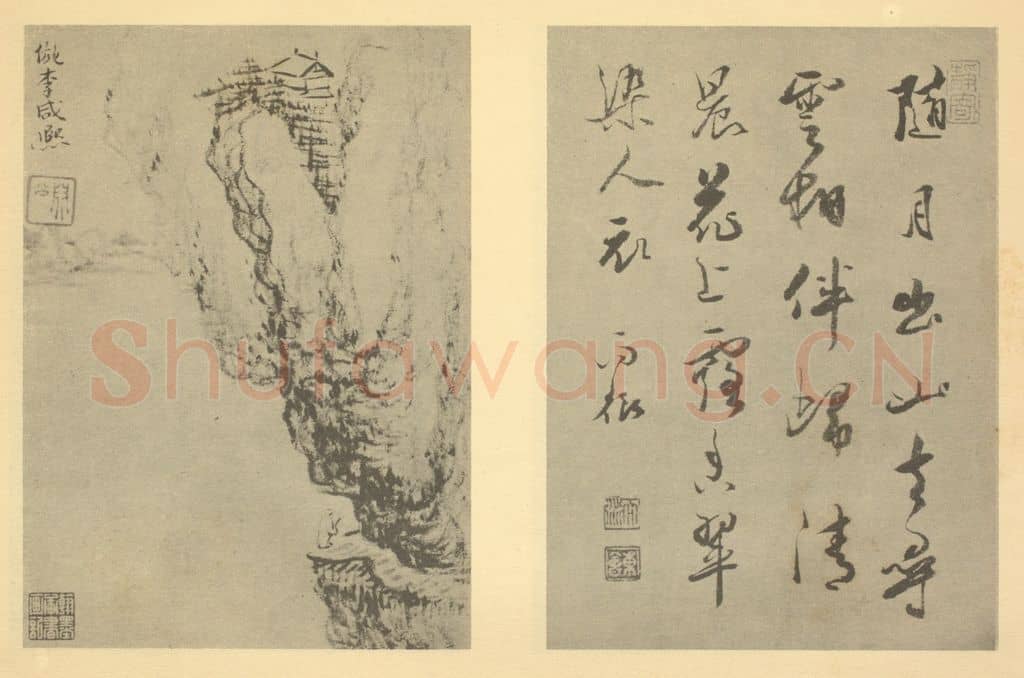 隨月出山去尋
雲相伴歸清
晨花上露翠
染人衣
倣李咸熙
Shufawang.CN